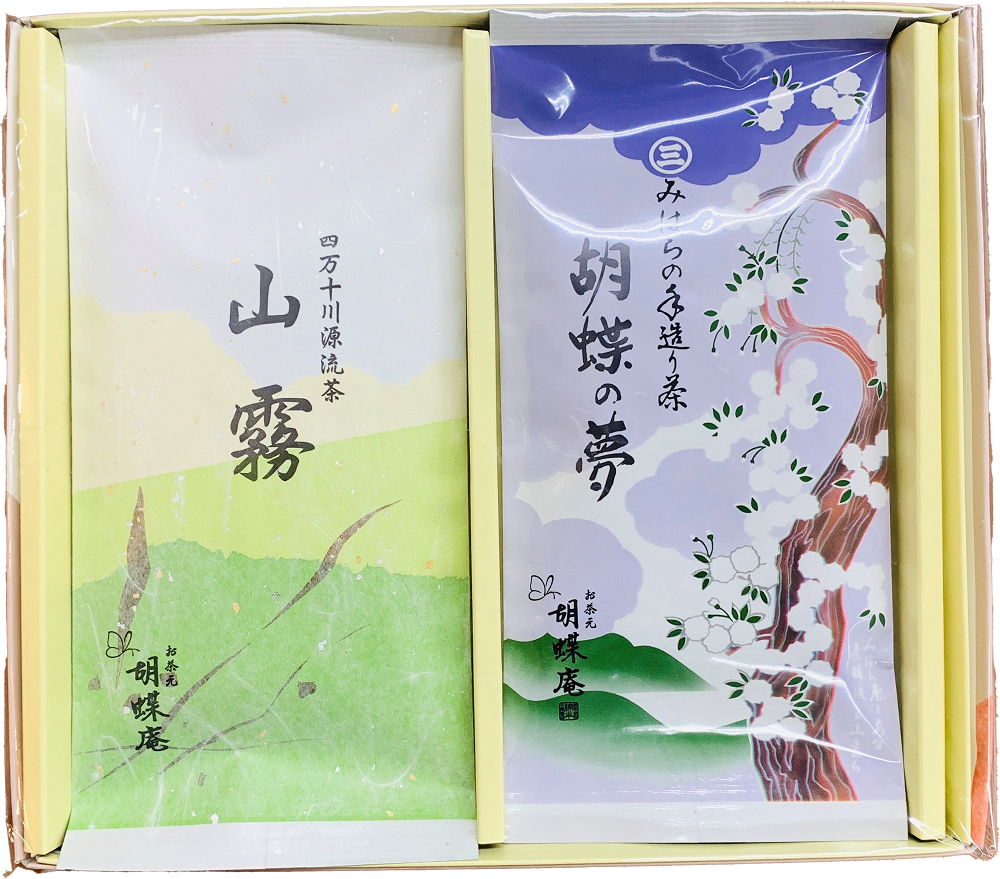 四万十川源流茶
山霧
お茶元
胡蝶庵
三
みはらの手造り茶
胡蝶の夢
お茶元
胡蝶庵